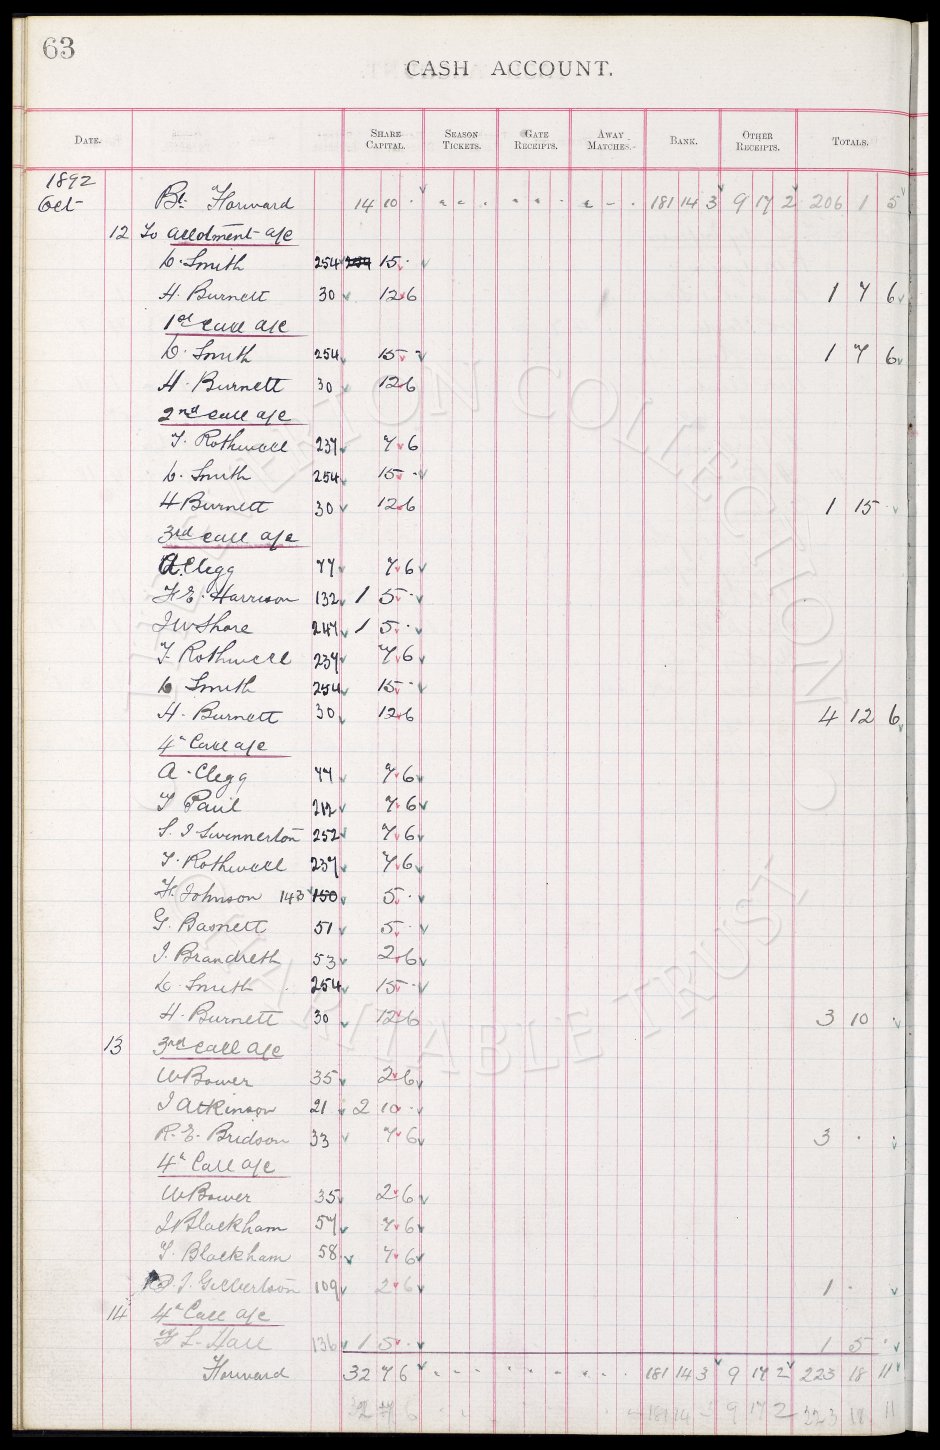 63
CASH ACCOUNT.
DATE. SHARE CAPITAL. SEASON TICKETS. GATE RECEIPTS. AWAY MATCHES. BANK. OTHER RECEIPTS. TOTALS.
1892
Oct Bt. Forward 14 10 · 181 14 3 9 17 2 206 1 5
12 To allotment a/c
C. Smith 254 15 ·
H. Burnett 30 12 6 1 7 6
1st Call a/c
C. Smith 254 15 - 1 7 6
H. Burnett 30 12 6
2nd Call a/c
T. Rothwell 237 7 6
C. Smith 254 15 -
H Burnett 30 12 6 1 15 ·
3rd Call a/c
A. Clegg 77 7 6
F E. Harrison 132 1 5 ·
J W Shore 247 1 5 ·
T. Rothwell 237 7 6
C Smith 254 15 -
H. Burnett 30 12 6 4 12 6
4th Call a/c
A. Clegg 77 7 6
T Paul 212 7 6
S. J Swinnerton 252 7 6
T. Rothwell 237 7 6
H. Johnson 143 150 5 ·
G. Basnett 51 5 ·
J. Brandreth 53 2 6
C. Smith 254 15 -
H. Burnett 30 12 6 3 10
13 3rd Call a/c
W Bower 35 2 6
J Atkinson 21 2 10 ·
R. E. Bridson 33 7 6 3 · ·
4th Call a/c
W Bower 35 2 6
J Blackham 57 7 6
T. Blackham 58 7 6
J. Gilbertson 109 2 6 1 ·
14 4th Call a/c
L. Hall 136 1 5 · 1 5 ·
Forward 32 7 6 181 14 3 9 17 2 223 18 11
32 7 6 181 14 3 9 17 2 223 18 11
EVERTON COLLECTION
CHARITABLE TRUST